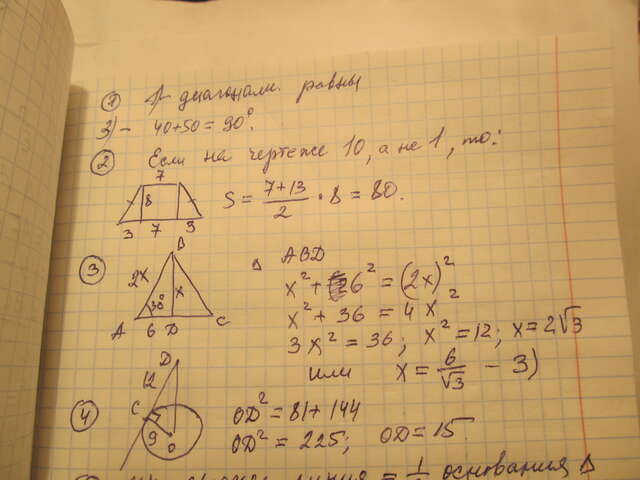 1 диагонали равны
3) - 40+50 = 90°.
2 Если на чертеже 10, а не 1, то:
7
8
3 7 3
S = (7+13)/2 · 8 = 80.
3
B
2x
30°
x
A 6 D C
Δ ABD
x² + 6² = (2x)²
x² + 36 = 4x²
3x² = 36; x² = 12; x = 2√3
или x = 6/√3 - 3)
4
D
12
C
9
O
OD² = 81 + 144
OD² = 225; OD = 15.
линия = 1/ основания Δ